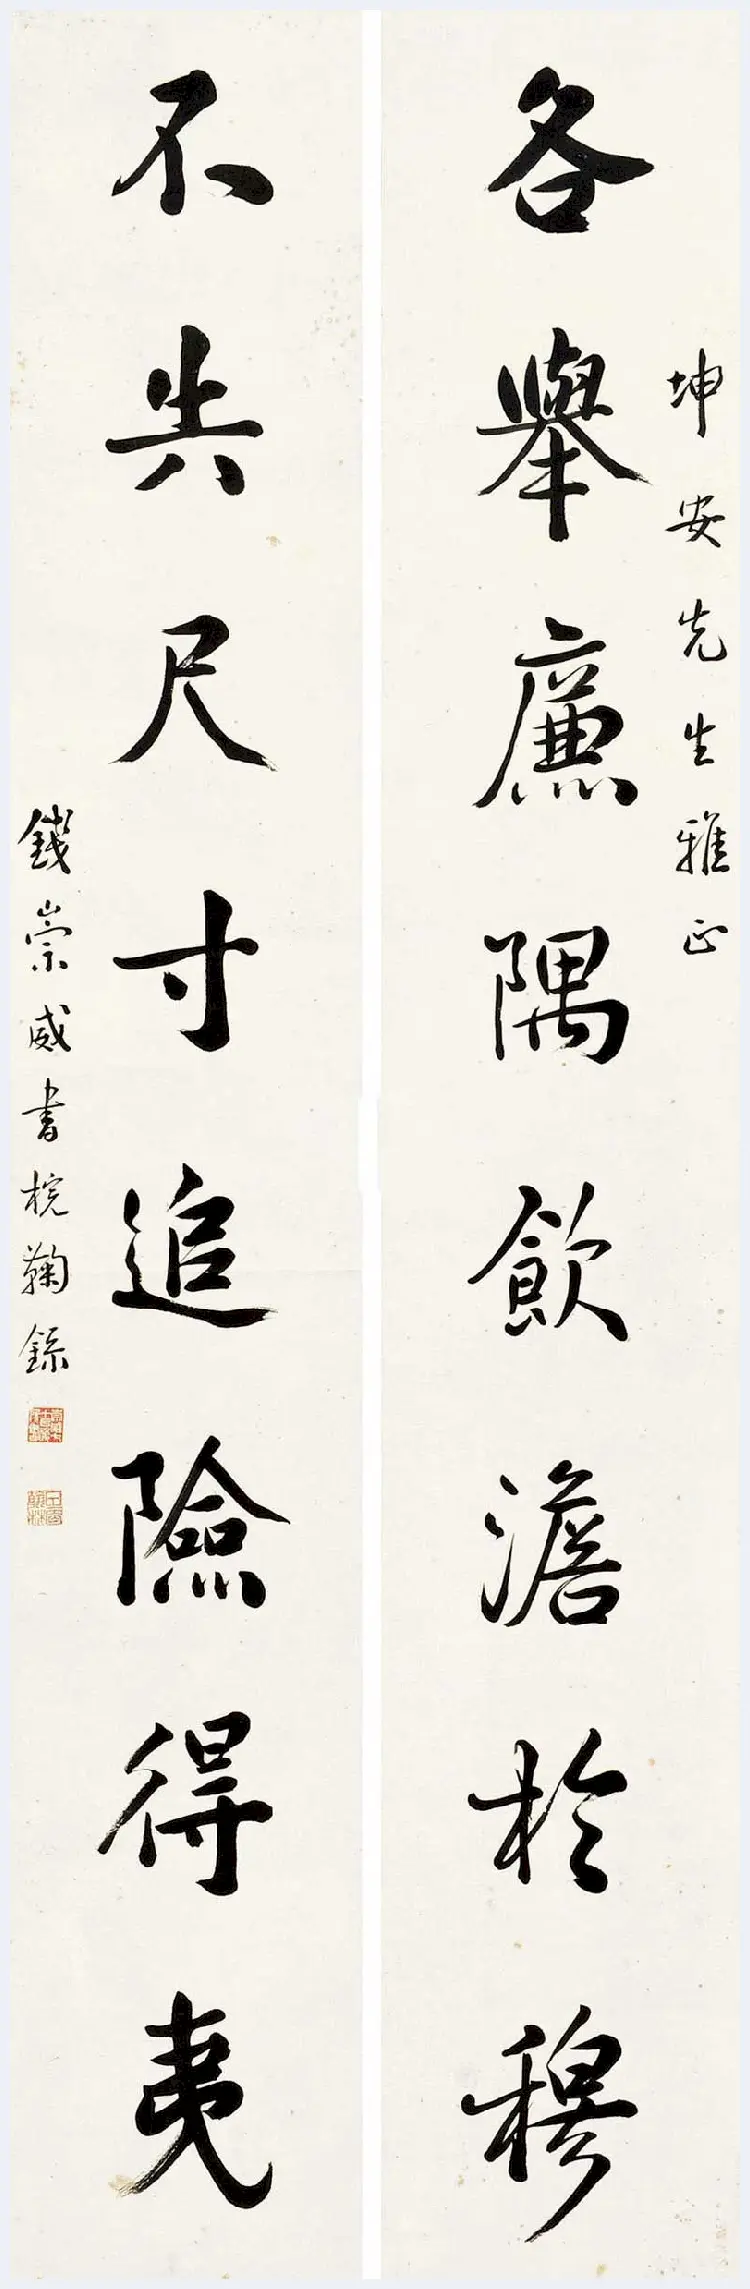 坤安先生雅正
各舉廉隅飲澹於穆
不失尺寸追險得夷
錢崇威書梡鞠錄